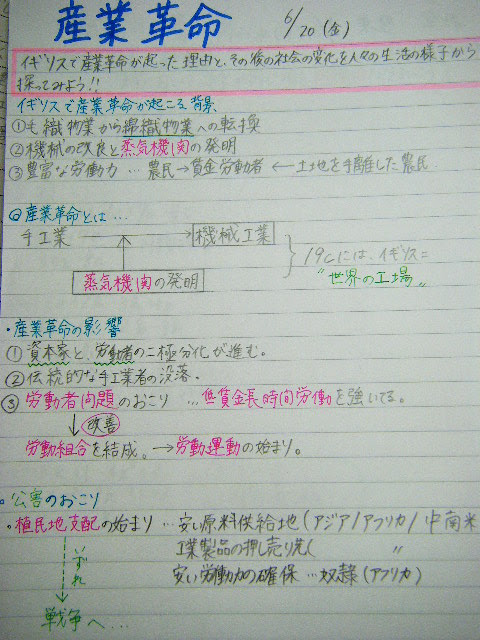 産業革命 6/20(金)
イギリスで産業革命が起った理由と、その後の社会の変化を人々の生活の様子から
探ってみよう!!
イギリスで産業革命が起こる背景
①毛織物業から綿織物業への転換
②機械の改良と蒸気機関の発明
③豊富な労働力 … 農民→賃金労働者 ←土地を手離した農民
◎産業革命とは…
手工業 → 機械工業
蒸気機関の発明
19cには、イギリス=
"世界の工場"
・産業革命の影響
①資本家と、労働者の二極分化が進む。
②伝統的な手工業者の没落。
③労働者問題のおこり …低賃金長時間労働を強いてる。
↓改善
労働組合を結成。→労動運動の始まり。
・公害のおこり
・植民地支配の始まり … 安い原料供給地(アジア/アフリカ/中南米
工業製品の押し売り先( 〃
安い労働力の確保 …奴隷(アフリカ)
いずれ
戦争へ…